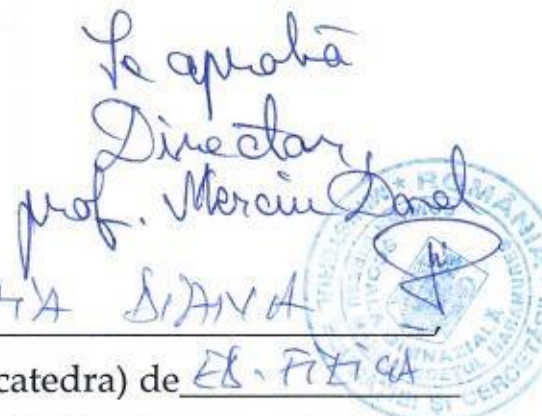 Se aprobă
Director,
prof. Merciu Dorel
DIANA
catedra) de ED. FIZICA
ROMÂNIA
GIMNAZIALĂ